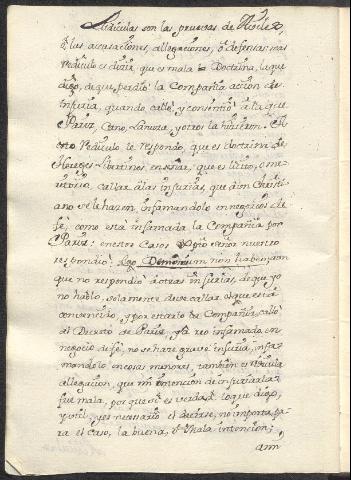 Ridiculas son las pruevas de Noclex,
ò las acusaciones, allegaciones, ò defensas: mas
ridiculo es dizir, que es mala la Doctrina, la que
digo, de que perdiò la Compañia accion de
injuria, quando callò, y consintiò à la que
Paris, Cano, Lanuza, y otros la hizieron. A
esto Ridiculo, le respondo, que es doctrina de
Hereges Libertinos enseñar, que es licito, o me-
ritorio, callar à las injurias, que à un Christi-
ano se le hazen, infamandolo en negocios de
fè, como està infamada la Compañia por
Paris: en estos casos Christo Señor nuestro
respondiò: Ego Demonium non habeo, con
que no respondiò à otras injurias, de que yo
no hablo, solamente deve callar el que està
convencido, y por estarlo la Compañia, callò
al Decreto de Paris, y al reo infamado en
negocio de fè, no se haze grave injuria, infa-
mandolo en cosas menores, tambien es ridicula
allegacion, que mi intencion de injuriarla
fue mala, por que si es verdad lo que digo,
y util, y es necesario el dezirse, no importa pa-
ra el caso, la buena, ò mala intencion;
aun